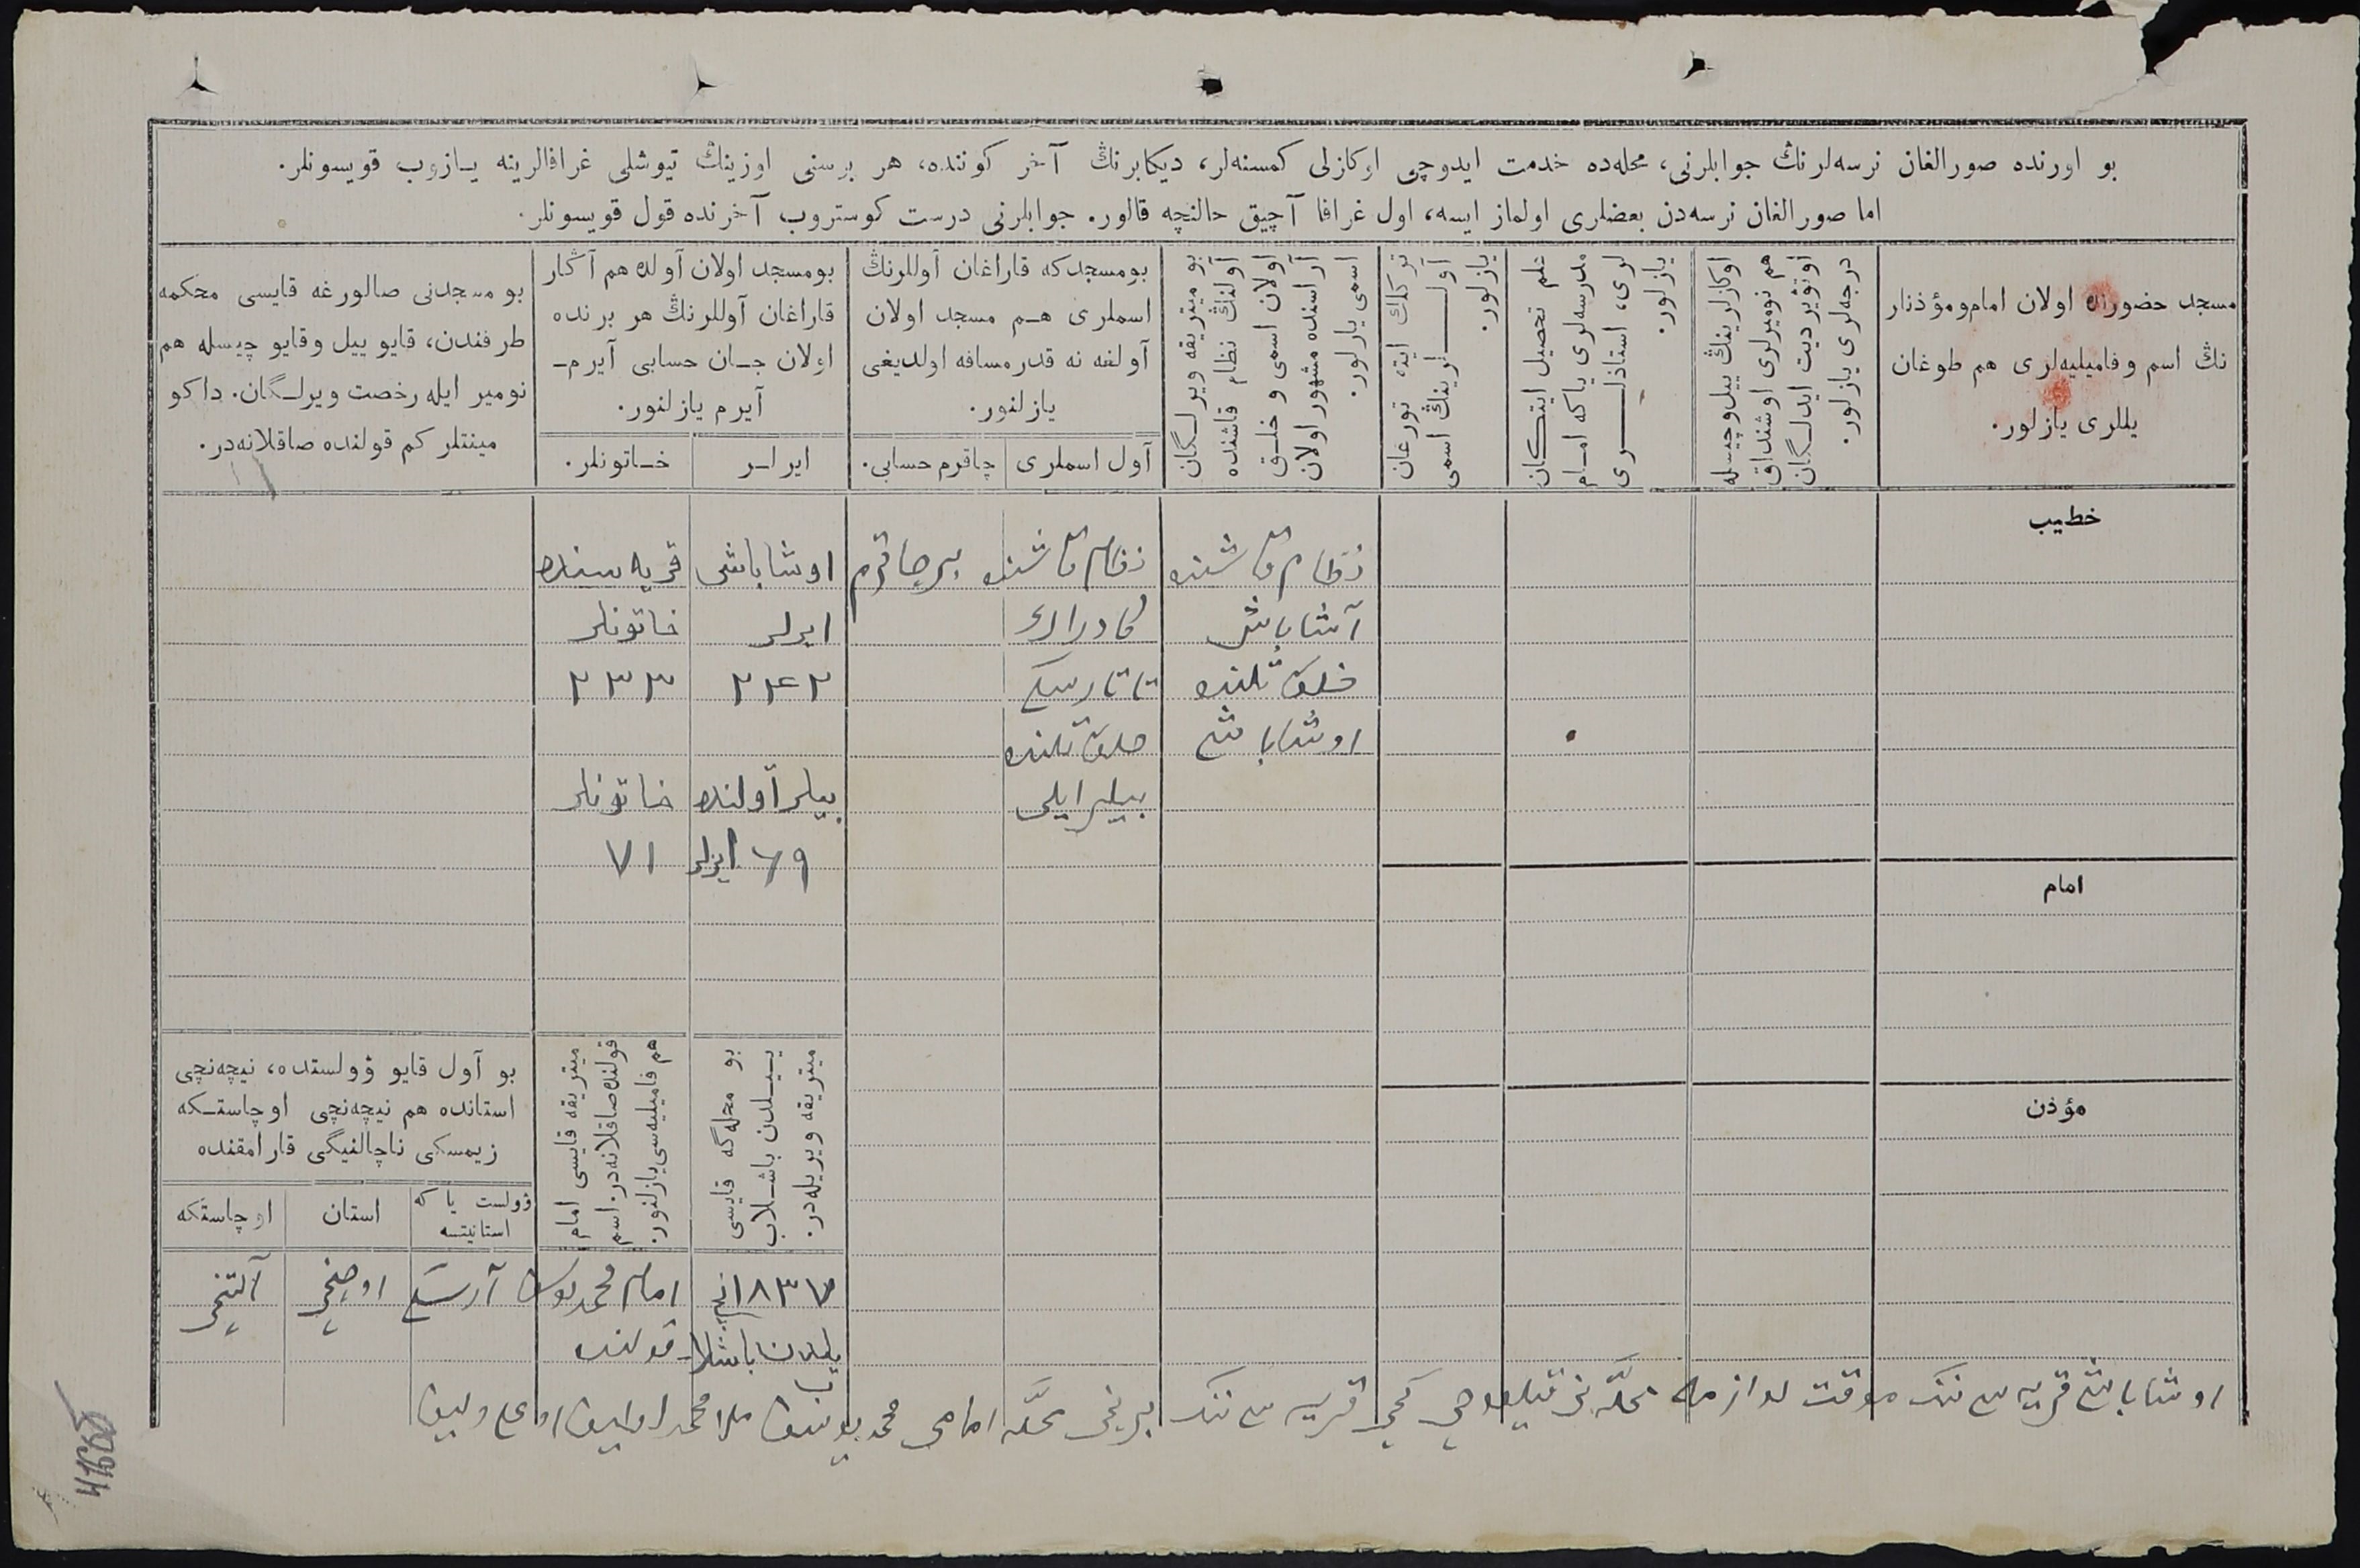 بو اورنده صورالغان نرسه‌لرنڭ جوابلرنی، محله‌ده خدمت ایدوچی اوکازلی کمسنه‌لر، دیکابرنڭ آخر کوننده، هر برسنی اوزینڭ تیوشلی غرافالرینه یازوب قویسونلر.
اما صورالغان نرسه‌دن بعضلری اولماز ایسه، اول غرافا آچیق حالنچه قالور. جوابلرنی درست کوستروب آخرنده قول قویسونلر.
مسجد حضورنده اولان امام‌ومؤذنلر
نڭ اسم وفامیلیه‌لری هم طوغان
یللری یازلور.
اوکازلرینڭ ییل‌وچیسله
هم نومیرلری اوشنداق
اوتویردیت ایدلـگان
درجه‌لری یازلور.
علم تحصیل ایتـکان
مدرسه‌لری یاکه امـام
لری، استاذلـری
یازلور.
ترکلك ایته، تورغان
آوللرینڭ اسمی
یازلور.
بو میتریقه ویرلـگان
آولنڭ نظام قاشنده
اولان اسمی و خلـق
آراسنده مشهور اولان
اسمی یازلور.
بومسجدکه قاراغان آوللرنڭ
اسملری هـم مسجد اولان
آولغه نه قدر مسافه اولدیغی
یازلنور.
آول اسملری
چاقرم حسابی.
بومسجد اولان آولده هم آڭار
قاراغان آوللرنڭ هر برنده
اولان جـان حسابی آیرم-
آیرم یازلنور.
ایرلـر
خـاتونلر.
بو مسجدنی صالورغه قایسی محکمه
طرفندن، قایو ییل وقایو چیسله هم
نومیر ایله رخصت ویرلـگان. داکو
مینتلر کم قولنده صاقلانه‌در.
خطیب
نظام قاشنده
آشاباش
خلق تلنده
اوشاباشی
نظام قاشنده
تاتارسکی
خلق تلنده
بیلیر ایلی
بر چاقرم
اوشاباشی
قریه سنده
ایرلر
خاتونلر
۲۴۲
۲۳۳
بیلر آولنده
خاتونلر
۶۹ ایرلر
۷۱
امام
مؤذن
بو محله‌گه قایسی
ییـلدن باشـلاب
میتریقه ویریله‌در.
میتریقه قایسی امام
قولنده صاقلانه‌در. اسم
هم فامیلیه‌سی یازلنور.
بو آول قایو وولستده، نیچه‌نچی
استانده هم نیچه‌نچی اوچاستـکه
زیمسکی ناچالنیگی قارامقنده
وولست یا که
استانیتسه
استان
اوچاستکه
۱۸۳۷نچی
یلدن باشلاب
امام محمد یوسف
قولنده
آرسکی
اوچنچی
آلتنچی
اوشاباشی قریه سی ننك موقت لوازمه محله نی قیلغوچی کچی قریه سی ننك برنچی محله امامی محمد یوسف ملا محمد